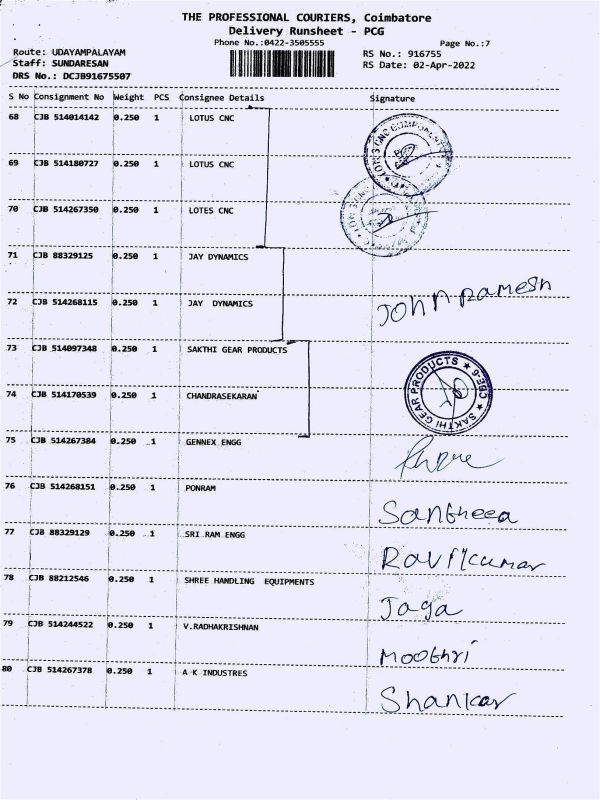 THE PROFESSIONAL COURIERS, Coimbatore
Delivery Runsheet - PCG
Phone No.:0422-3505555 Page No.:7
Route: UDAYAMPALAYAM RS No.: 916755
Staff: SUNDARESAN RS Date: 02-Apr-2022
DRS No.: DCJB91675507
S No Consignment No Weight PCS Consignee Details Signature
68 CJB 514014142 0.250 1 LOTUS CNC
69 CJB 514180727 0.250 1 LOTUS CNC
70 CJB 514267350 0.250 1 LOTES CNC
71 CJB 88329125 0.250 1 JAY DYNAMICS
72 CJB 514268115 0.250 1 JAY DYNAMICS John Ramesh
73 CJB 514097348 0.250 1 SAKTHI GEAR PRODUCTS
★ SAKTHI GEAR PRODUCTS ★ CBE-6
74 CJB 514170539 0.250 1 CHANDRASEKARAN
75 CJB 514267384 0.250 1 GENNEX ENGG
76 CJB 514268151 0.250 1 PONRAM Sangheea
77 CJB 88329129 0.250 1 SRI RAM ENGG Ravikumar
78 CJB 88212546 0.250 1 SHREE HANDLING EQUIPMENTS Jaga
79 CJB 514244522 0.250 1 V.RADHAKRISHNAN Moothri
80 CJB 514267378 0.250 1 A K INDUSTRES Shankar